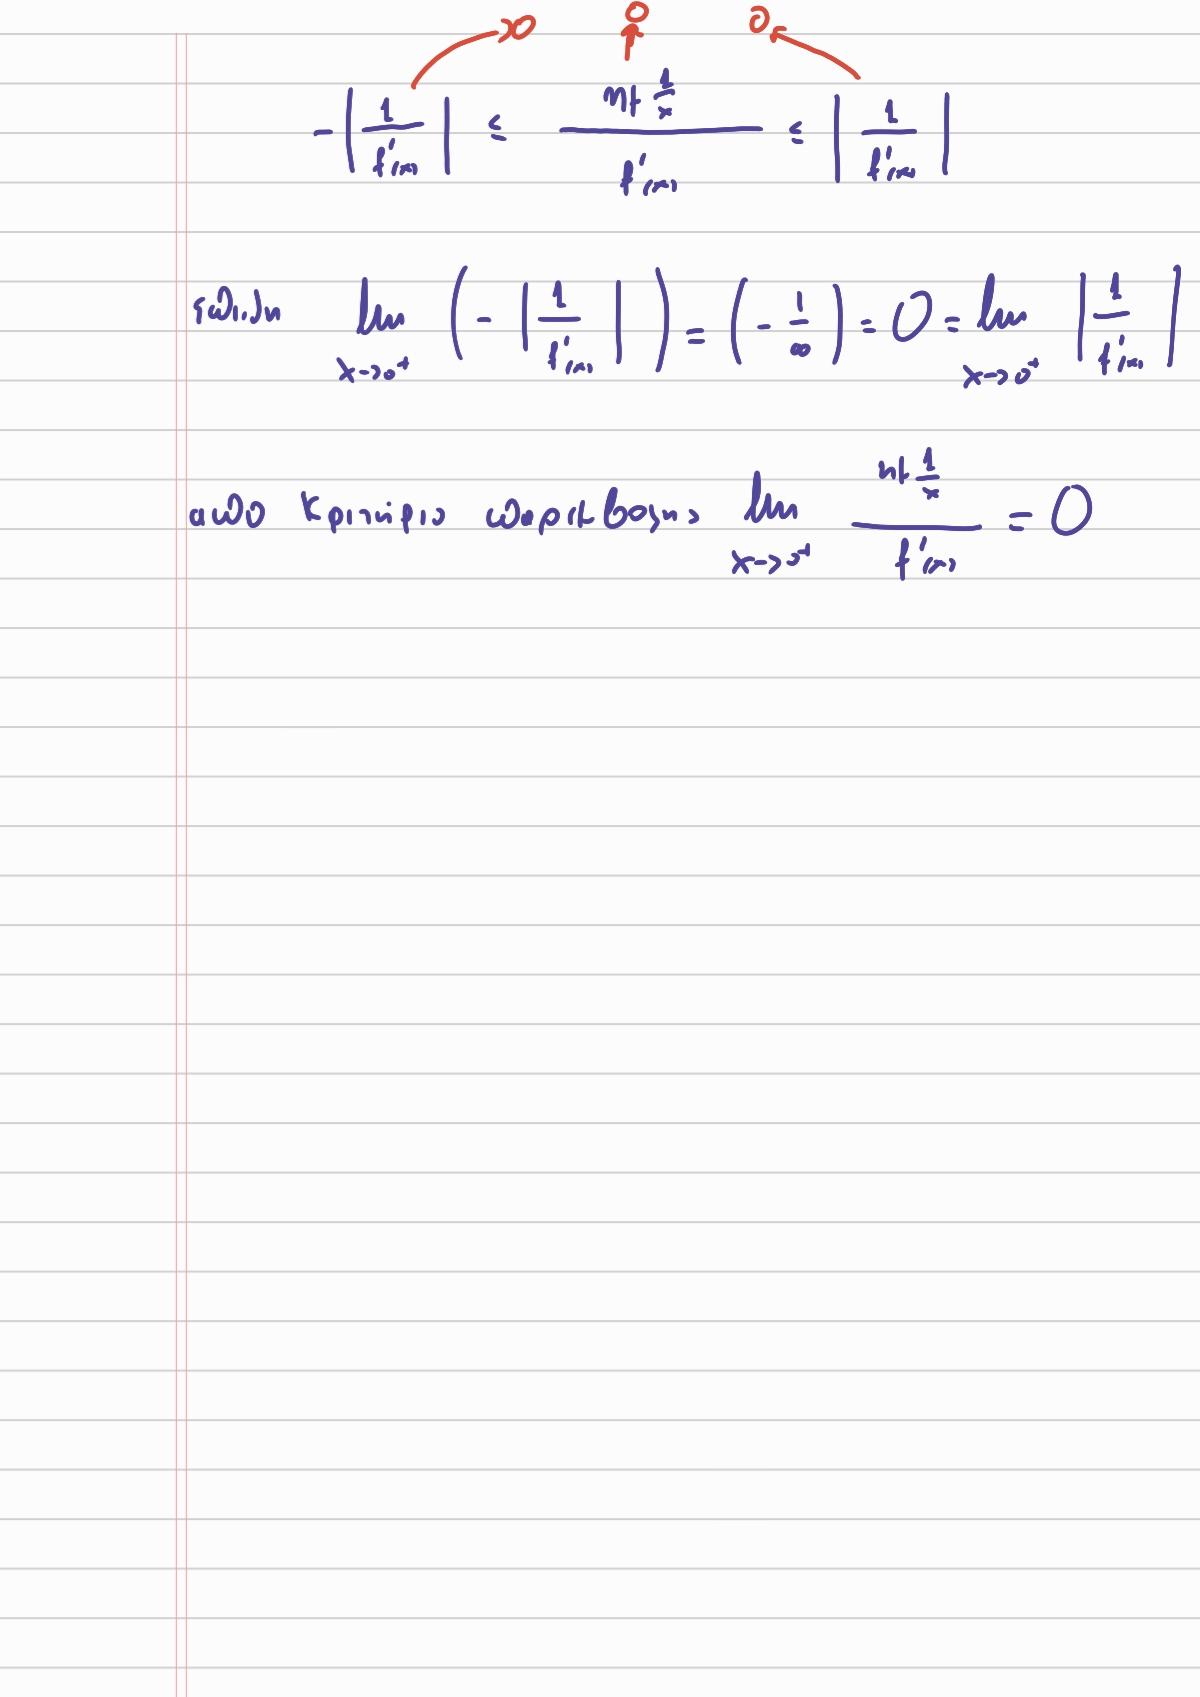 0 0 0
-|1/f'(x)| ≤ ημ 1/x / f'(x) ≤ |1/f'(x)|
επειδη lim x→0⁺ (-|1/f'(x)|) = (-1/∞) = 0 = lim x→0⁺ |1/f'(x)|
απο Κριτήριο παρεμβολης lim x→0⁺ ημ 1/x / f'(x) = 0